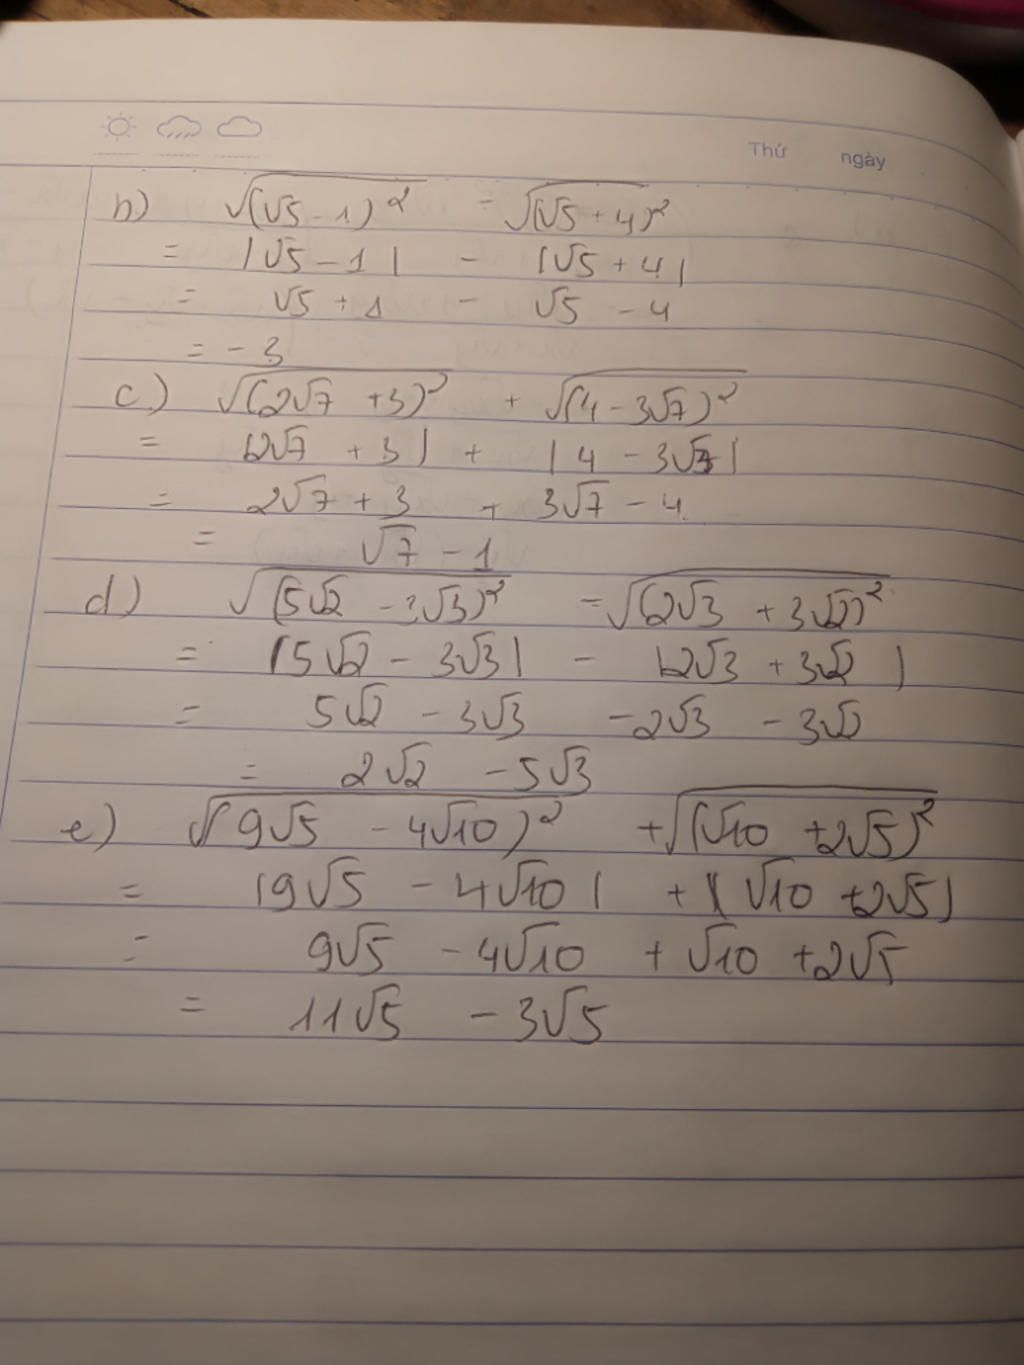 Thứ ngày
b) √(√5 - 1)² - √(√5 + 4)²
= |√5 - 1| - |√5 + 4|
= √5 + 1 - √5 - 4
= - 3
c) √(2√7 + 3)² + √(4 - 3√7)²
= |2√7 + 3| + |4 - 3√7|
= 2√7 + 3 + 3√7 - 4
= √7 - 1
d) √(5√2 - 3√3)² - √(2√3 + 3√2)²
= |5√2 - 3√3| - |2√3 + 3√2|
= 5√2 - 3√3 - 2√3 - 3√2
= 2√2 - 5√3
e) √(9√5 - 4√10)² + √(√10 + 2√5)²
= |9√5 - 4√10| + |√10 + 2√5|
= 9√5 - 4√10 + √10 + 2√5
= 11√5 - 3√5